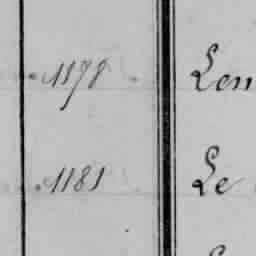 1178 Len
1181 Le